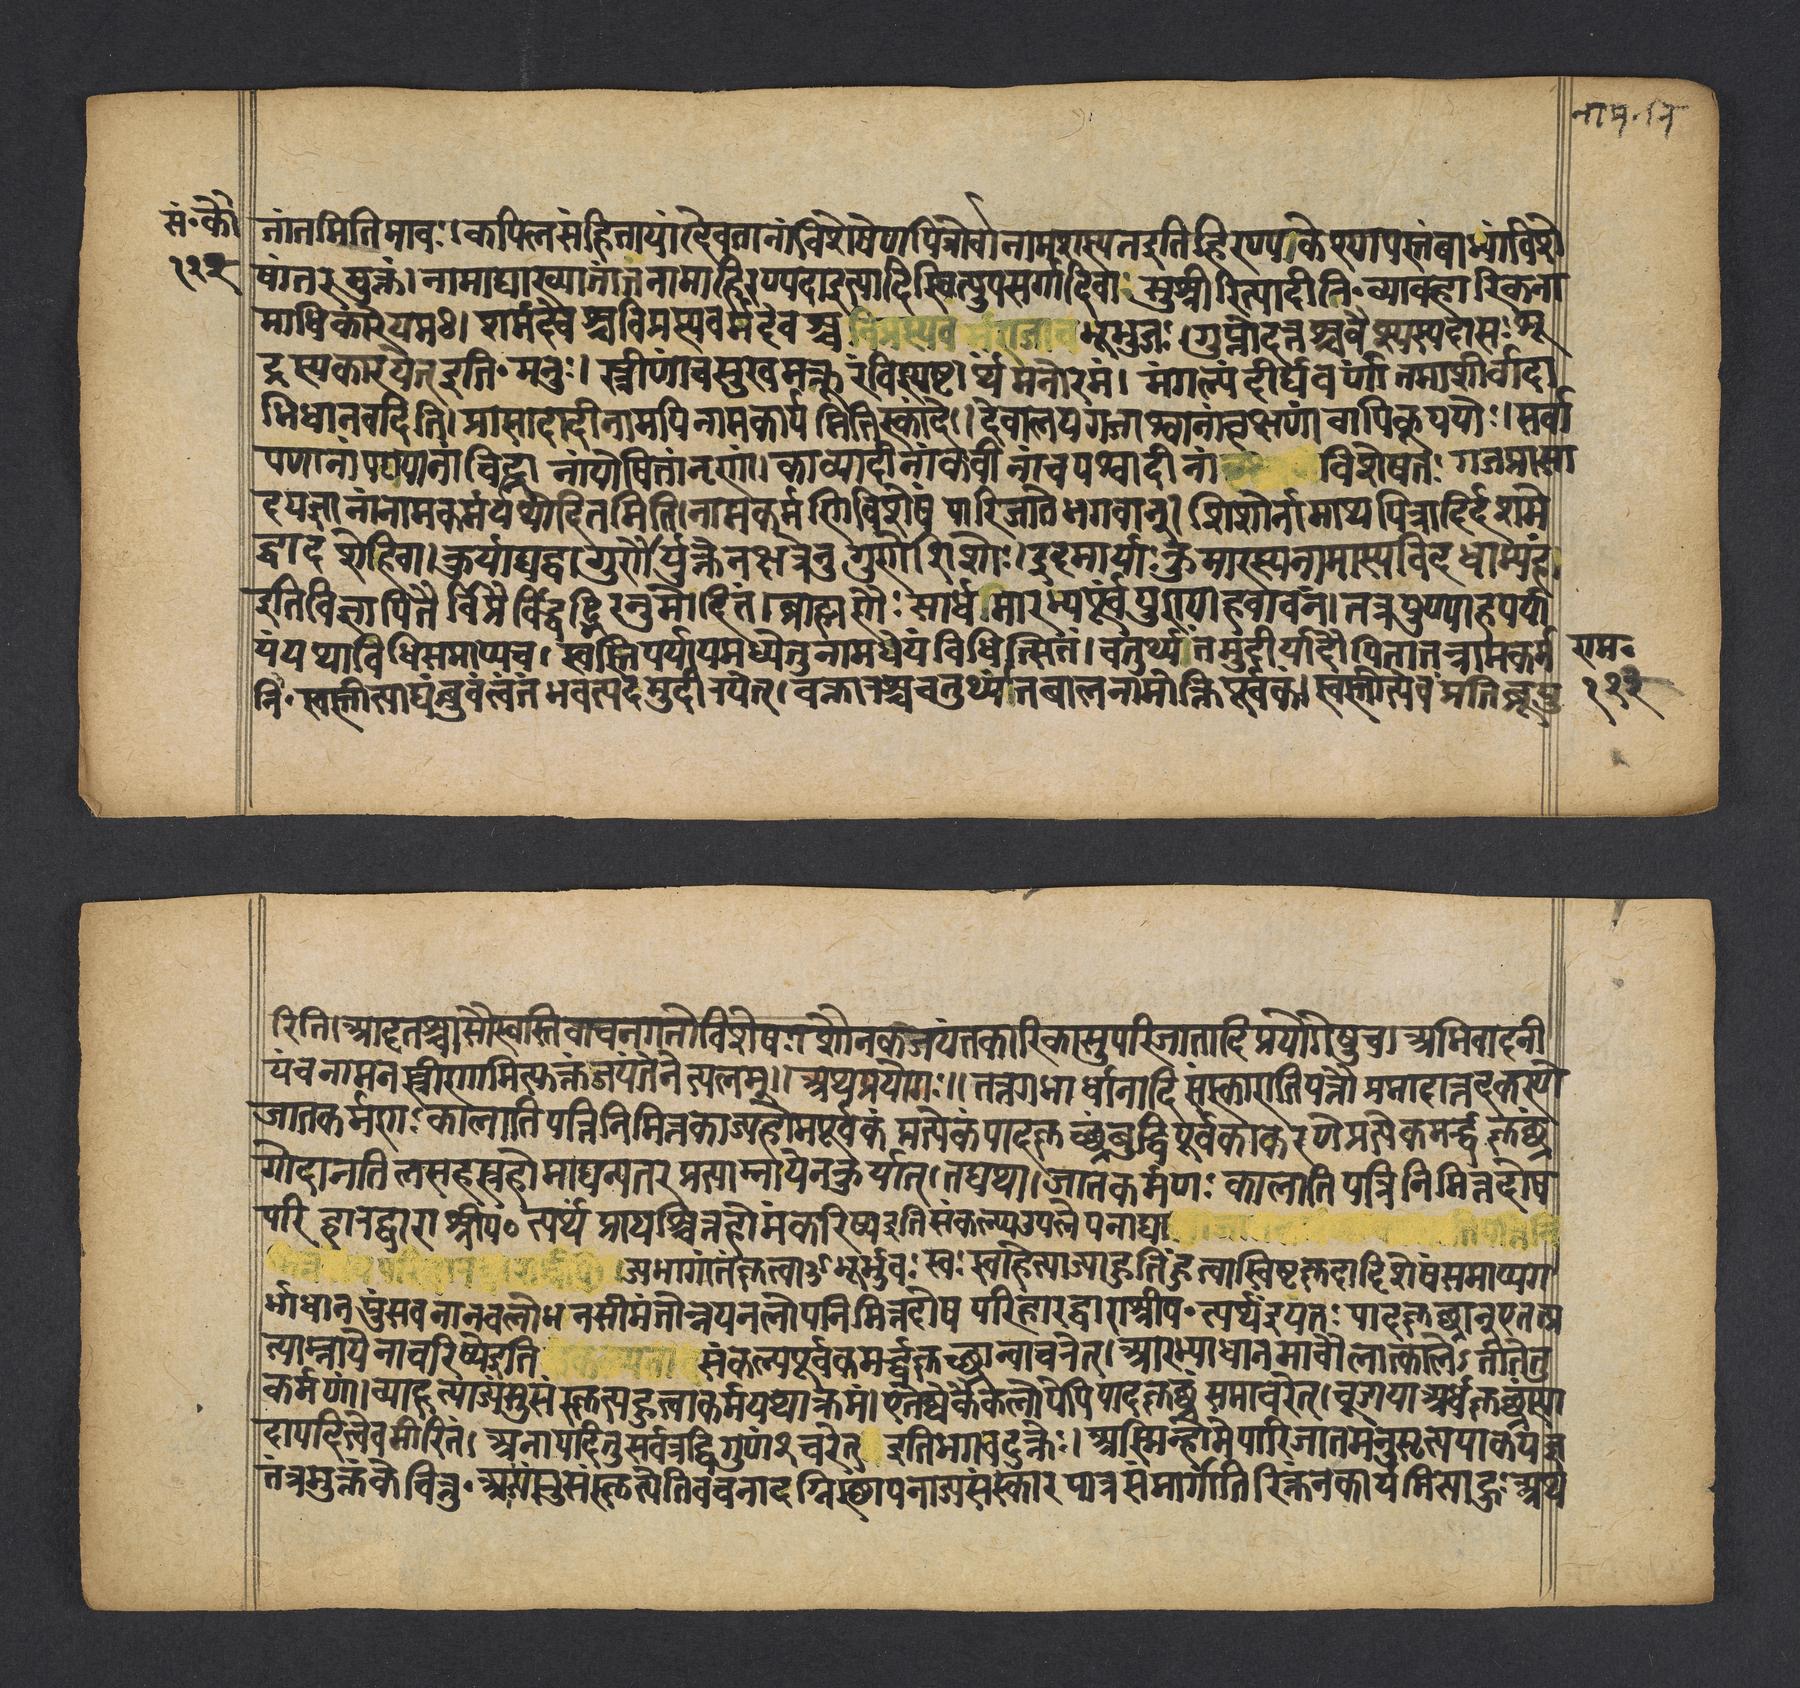 सं॰कौ
१२२
नांतमितिभावः।कपिलसंहितायां।दैवतानांविशेषेणपित्रोर्वानामशस्यतइतिहिरण्यकेश्यापस्तंबाभ्यांविशे
षांतरमुक्तं।नामाद्याख्यातांतंनामाहि।ण्यदाइत्यादिस्वित्युपसर्गादिवाःसुश्रीरित्यादीति॰व्यावहारिकना
माधिकारेयमः।शर्मदेवश्चविप्रस्यवर्मदेवश्चभूभुजः।गुप्तोदत्तश्चवैश्यस्यदासःशू
द्रस्यकारयेत्इति॰मनुः।स्त्रीणांचसुखमक्रूरंविस्पष्टार्थंमनोरमं।मंगल्यंदीर्घवर्णांतमाशीर्वादा
भिधानवदिति।प्रासादादीनामपिनामकार्यमितिस्कांदे।।देवालयगजाश्वानांवृक्षाणांवापिकूपयोः।सर्वा
पणानांपण्यानांचिह्नानांयोषितांनृणां।काव्यादीनांकवीनांचपश्वादीनांविशेषतः गजप्रासा
दयज्ञानांनामकर्मयथोदितमिति।नामकर्मणिविशेषःपारिजातेभगवान्।शिशोर्नामाथपित्रादिर्दशमे
द्वादशेहिवा।कुर्याद्यद्वागुरोर्युक्तेनक्षत्रेनुगुणेशिशोः।इहमार्याःकुमारस्यनामास्यविदधाम्यहं
इतिविज्ञापितैर्विप्रैर्विद्वद्भिरनुमोदितं।ब्राह्मणैःसार्धमारभ्यपूर्वंपुण्याहवाचनं।तत्रपुण्याहपर्या
यंयथाविधिसमाप्यच।स्वस्तिपर्यायमध्येतुनामधेयंविधित्सितं।चतुर्थ्यंतमुदीर्यादौपितातन्नामकर्म
नि॰स्वस्तीत्याद्यंब्रुवंत्वंतंभवत्पदमुदीरयेत्।वक्तारश्चचतुर्थ्यंतबालनामोक्तिपूर्वकं।स्वस्तीत्येवंप्रतिब्रूयु
राम॰
१२२
रिति।आदृतश्चासौस्वस्तिवाचनगतोविशेषःशौनकजयंतकारिकासुपरिजातादिप्रयोगेषुच।अभिवादनी
यंचनामनस्त्रीणामित्युक्तंजयंतेनेत्यलम्।।अथप्रयोगः।।तत्रगर्भाधानादिसंस्कारातिपत्तौप्रमादान्नदकरणे
जातकर्मणःकालातिपत्तिनिमित्तकाज्यहोमपूर्वकंप्रत्येकंपादकृच्छ्रंबुद्धिपूर्वकाकरणेप्रत्येकमर्द्धकृच्छ्रं
गोदानतिलसहस्रहोमाद्यन्यतरप्रत्याम्नायेनकुर्यात्।तद्यथा।जातकर्मणःकालातिपत्तिनिमित्तदोष
परिहारद्वाराश्रीप॰त्यर्थंप्रायश्चित्तहोमंकरिष्यइतिसंकल्प्यउपलेपनाद्या
ज्यभागांतंकृत्वाॐभूर्भुवःस्वःस्वाहेत्याज्याहुतिंहुत्वास्विष्टकृदादिशेषंसमाप्यग
र्भाधानपुंसवनानवलोभनसीमंतोन्नयनलोपनिमित्तदोषपरिहारद्वाराश्रीप॰त्यर्थंइयतःपादकृच्छ्रान्एतत्प्र
त्याम्नायेनाचरिष्येइतिसंकल्पपूर्वकमर्द्धकृच्छ्रान्वाचरेत्।आरभ्याधानमाचौलात्कालेऽतीतेतु
कर्मणां।व्याहृत्याज्यंसुसंस्कृत्यहुत्वाकर्मयथाक्रमं।एतेष्वेकैकलोपेपिपादकृच्छ्रंसमाचरेत्।चूडायाअर्धकृच्छ्रंस्या
दापदित्येवमीरितं।अनापदितुसर्वत्रद्विगुणंचरेत्इतिभगवदुक्तेः।अस्मिन्होमेपारिजातमनुसृत्यपाकयज्ञ
तंत्रमुक्तंकेचित्तु॰आज्यंसुसंस्कृत्येतिवचनादग्निस्थापनाज्यसंस्कारपात्रसंमार्गातिरिक्तंनकार्यमित्याहुःअथ